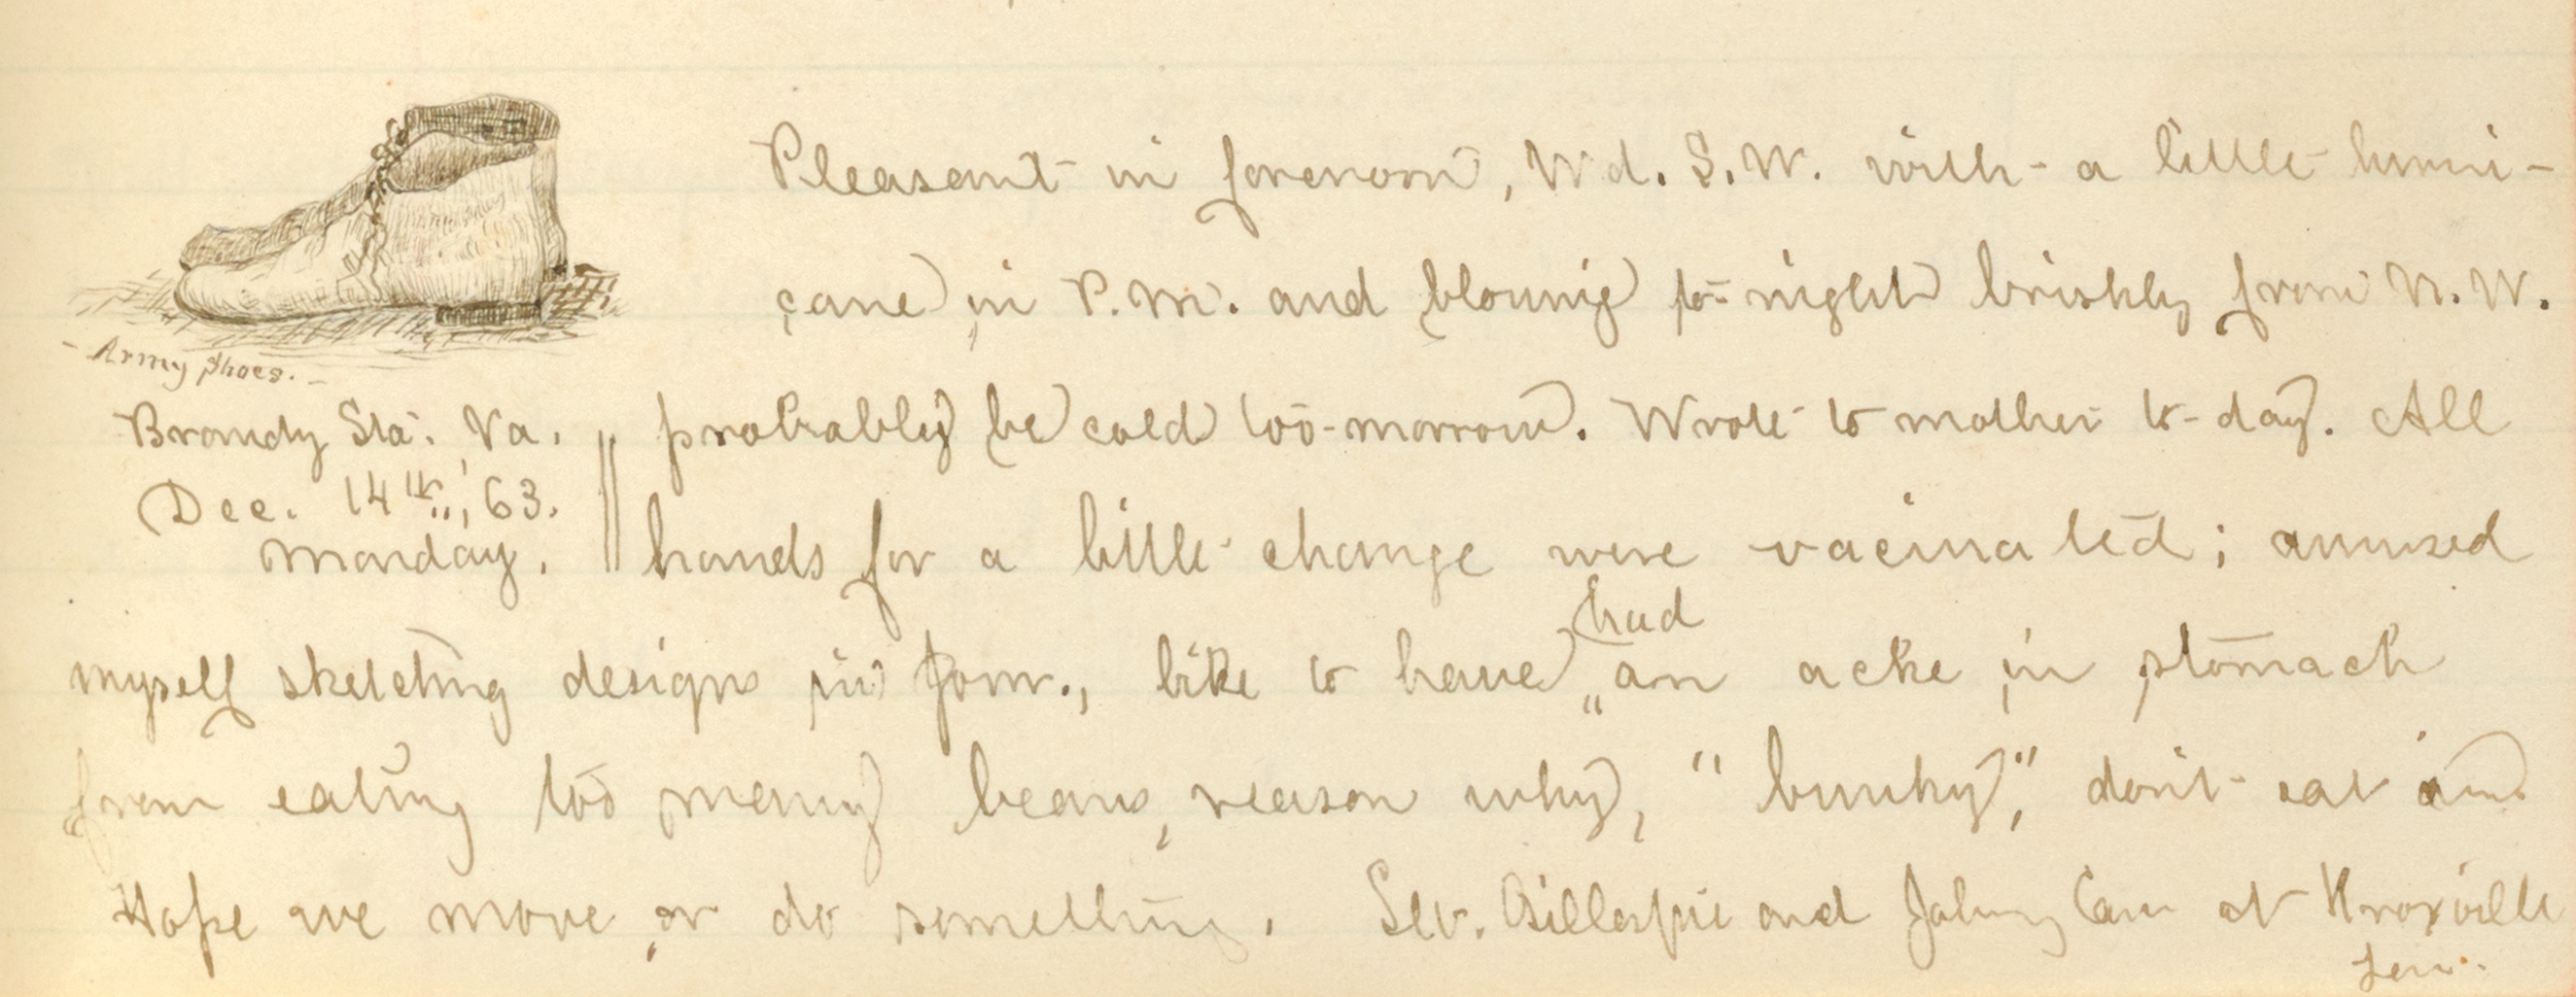 - Army Shoes. -
Brandy Sta. Va.
Dec. 14th, '63.
Monday.
Pleasant in forenoon, W'd. S.W. with a little hurri-
cane in P.M. and blowing to-night briskly from N.W.
probably be cold too-morrow. Wrote to mother to-day. All
hands for a little change were vacinated; amused
myself sketching designs in Jour., like to have had an acke in stomach
from eating too many beans, reason why, "bunky", don't eat
Hope we move or do something. Gillespie and Johny at Knoxville
Ten.